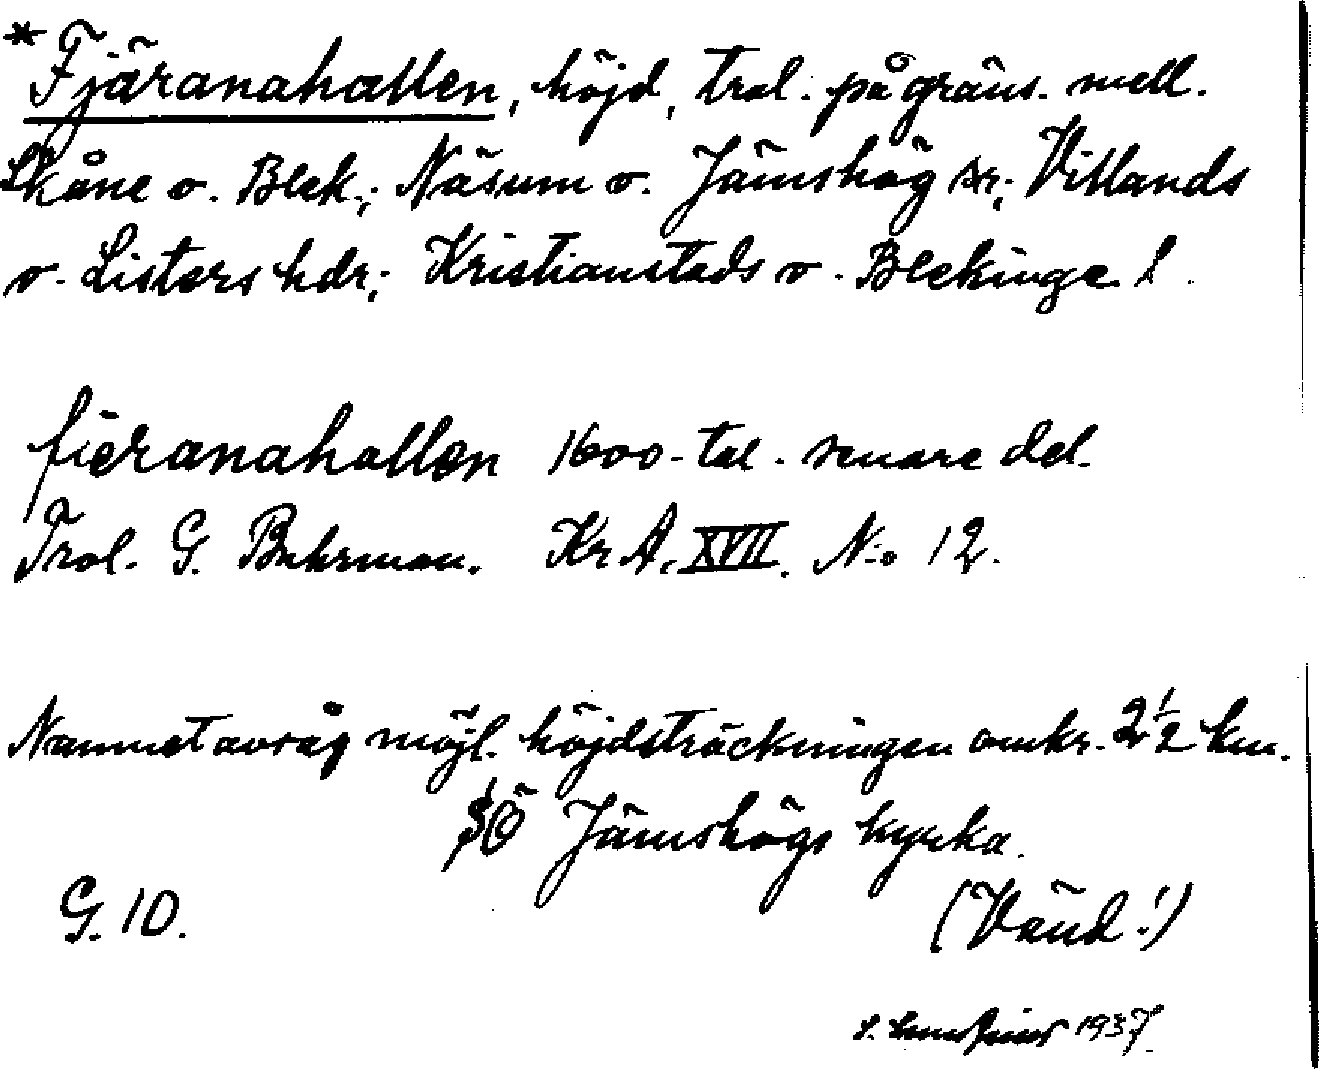 *Fjäranahallen, höjd, trol. på gräns. mell.
Skåne o. Blek.; Näsum o. Jämshög sr; Villands
o. Listers hdr; Kristianstads o. Blekinge l.
fieranahallen 1600-tal. senare del.
Trol. G. Buhrman. Kr A. XVII. N:o 12.
Namnet avsåg möjl. höjdsträckningen omkr. 2 1/2 km.
Ö Jämshögs kyrka.
G. 10. (Vänd!)
1937